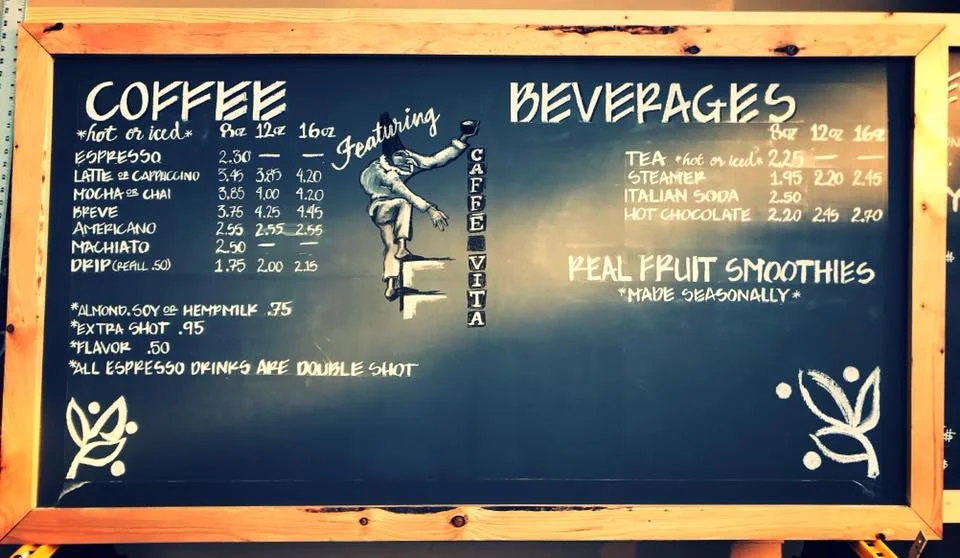 COFFEE
*hot or iced* 8oz 12oz 16oz
ESPRESSO 2.30 — —
LATTE OR CAPPUCCINO 3.45 3.85 4.20
MOCHA OR CHAI 3.85 4.00 4.20
BREVE 3.75 4.25 4.45
AMERICANO 2.55 2.55 2.55
MACHIATO 2.50 — —
DRIP (REFILL .50) 1.75 2.00 2.15
*ALMOND, SOY OR HEMPMILK .75
*EXTRA SHOT .95
*FLAVOR .50
*ALL ESPRESSO DRINKS ARE DOUBLE SHOT
Featuring
CAFFE VITA
BEVERAGES
8oz 12oz 16oz
TEA *hot or iced* 2.25 — —
STEAMER 1.95 2.20 2.45
ITALIAN SODA 2.50
HOT CHOCOLATE 2.20 2.45 2.70
REAL FRUIT SMOOTHIES
*MADE SEASONALLY*